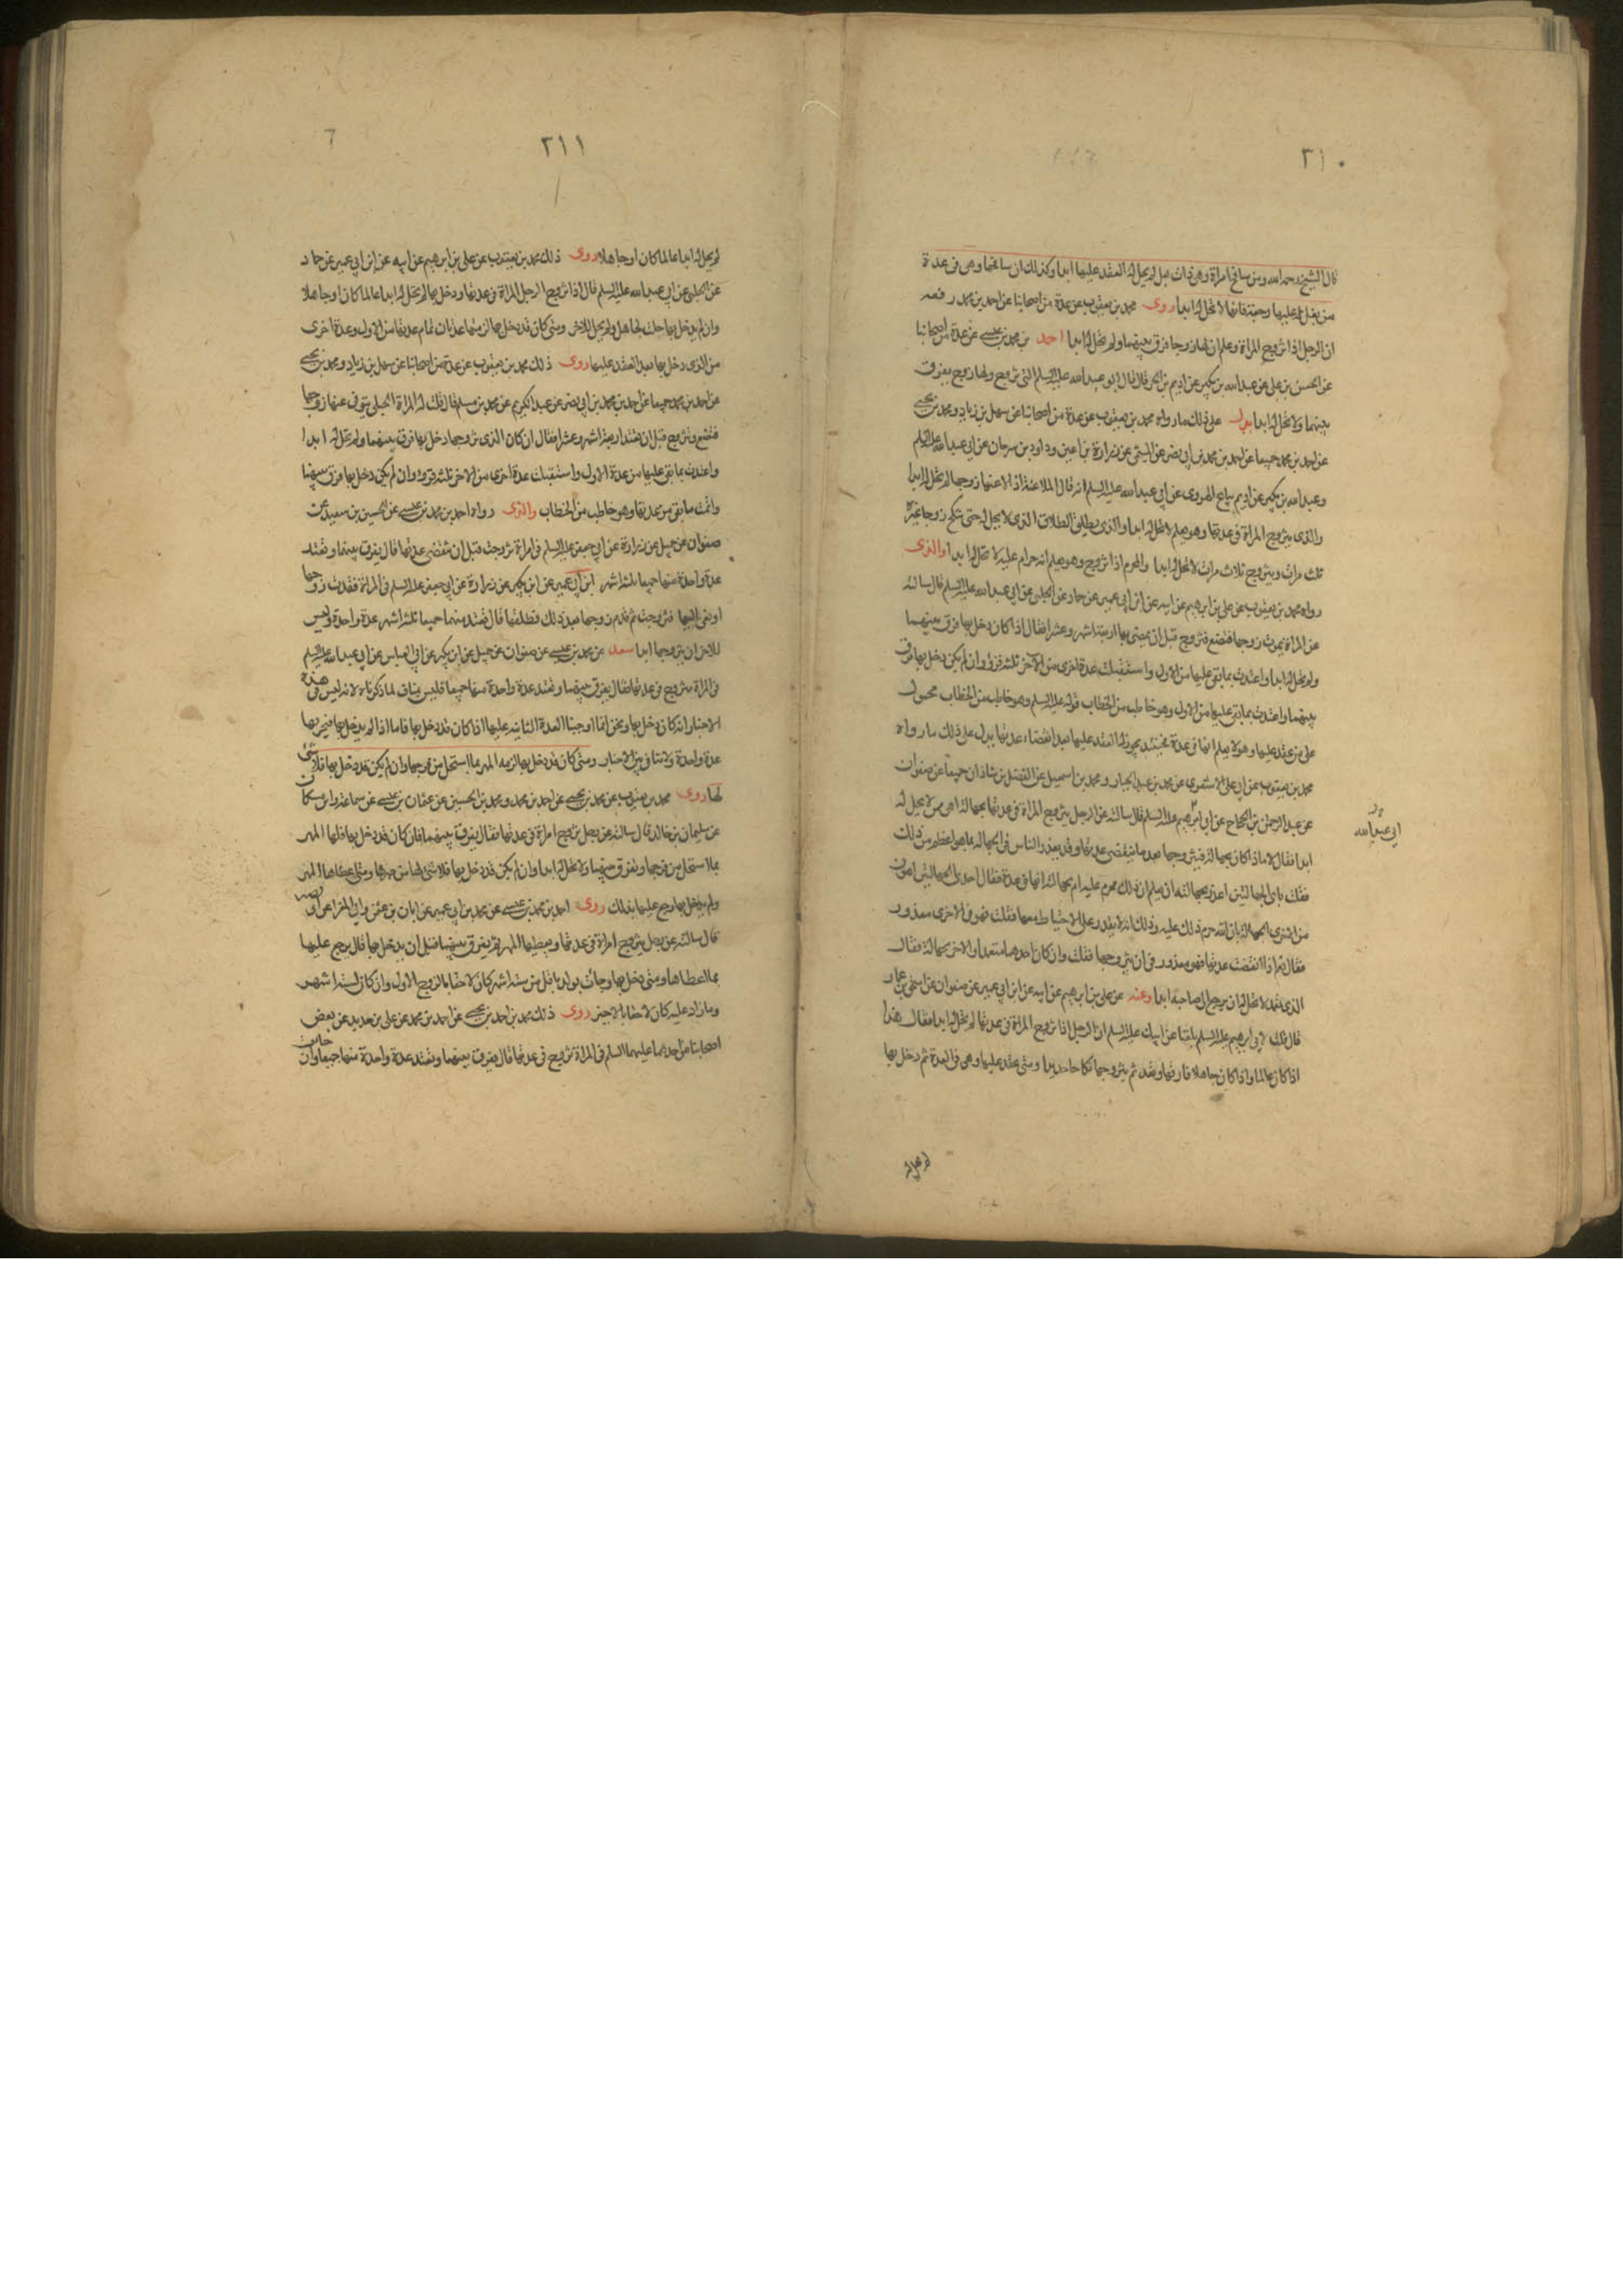 ٢١٠
قال الشيخ رحمه الله ومن سافح امراة وهي ذات بعل لم يحل له العقد عليها ابدا وكذلك ان سافحها وهي في عدة
من بعل له عليها رجعة فانها لا تحل له ابدا روى محمد بن يعقوب عن عدة من اصحابنا عن احمد بن محمد رفعه
ان الرجل اذا تزوج المراة وعلم ان لها زوجا فرق بينهما ولم تحل له ابدا احمد بن محمد بن عيسى عن عدة من اصحابنا
عن الحسن بن علي عن عبد الله بن بكير عن اديم بن الحر قال قال ابو عبد الله عليه السلم التي تتزوج ولها زوج يفرق
بينهما ولا تحل له ابدا يدل على ذلك ما رواه محمد بن يعقوب عن عدة من اصحابنا عن سهل بن زياد ومحمد بن يحيى
عن احمد بن محمد جميعا عن احمد بن محمد بن ابي نصر عن المثنى عن زرارة بن اعين وداود بن سرحان عن ابي عبد الله عليه السلم
وعبد الله بن بكير عن اديم بياع الهروي عن ابي عبد الله عليه السلم انه قال الملاعنة اذا لاعنها زوجها لم تحل له ابدا
والذي يتزوج المراة في عدتها وهو يعلم لا تحل له ابدا والذي يطلق الطلاق الذي لا تحل له حتى تنكح زوجا غيره
ثلث مرات ويتزوج ثلاث مرات لا تحل له ابدا والمحرم اذا تزوج وهو يعلم انه حرام عليه لا تحل له ابدا والذى
رواه محمد بن يعقوب عن علي بن ابرهيم عن ابيه عن ابن ابي عمير عن حماد عن الحلبي عن ابي عبد الله عليه السلم قال سالته
عن المراة يموت زوجها فتضع فتزوج قبل ان يمضي بها اربعة اشهر وعشرا فقال اذا كان دخل بها فرق بينهما
ولم تحل له ابدا واعتدت بما بقي عليها من الاول واستقبلت عدة اخرى من الاخر ثلثة قروء وان لم يكن دخل بها فرق
بينهما واعتدت بما بقي عليها من الاول وهو خاطب من الخطاب قوله عليه السلم وهو خاطب من الخطاب محمول
على من عقد عليها وهو لا يعلم انها في عدة فحينئذ يجوز له العقد عليها بعد انقضاء عدتها يدل على ذلك ما رواه
محمد بن يعقوب عن ابي علي الاشعري عن محمد بن عبد الجبار ومحمد بن اسمعيل عن الفضل بن شاذان جميعا عن صفوان
عن عبد الرحمن بن الحجاج عن ابي ابرهيم عليه السلم قال سالته عن الرجل يتزوج المراة في عدتها بجهالة اهي ممن لا يحل له
ابي عبد الله
ابدا فقال لا اما اذا كان بجهالة فليتزوجها بعد ما تنقضي عدتها وقد يعذر الناس في الجهالة بما هو اعظم من ذلك
فقلت باي الجهالتين اعذر بجهالته ان يعلم ان ذلك محرم عليه ام بجهالته انها في عدة فقال احدى الجهالتين اهون
من الاخرى الجهالة بان الله حرم ذلك عليه وذلك انه لا يقدر على الاحتياط معها فقلت فهو في الاخرى معذور
فقال نعم اذا انقضت عدتها فهو معذور في ان يتزوجها فقلت وان كان احدهما متعمدا والاخر بجهالة فقال
الذي تعمد لا تحل له ان يرجع الى صاحبه ابدا وعنه عن علي بن ابرهيم عن ابيه عن ابن ابي عمير عن صفوان عن اسحق بن عمار
قال قلت لابي ابرهيم عليه السلم بلغنا عن ابيك عليه السلم ان الرجل اذا تزوج المراة في عدتها لم تحل له ابدا فقال هذا
اذا كان عالما واذا كان جاهلا فارقها وتعتد ثم يتزوجها نكاحا جديدا ومتى عقد عليها وهي في العدة ثم دخل بها
لم تحل له
٢١١
لم تحل له ابدا عالما كان او جاهلا روى ذلك محمد بن يعقوب عن علي بن ابرهيم عن ابيه عن ابن ابي عمير عن حماد
عن الحلبي عن ابي عبد الله عليه السلم قال اذا تزوج الرجل المراة في عدتها ودخل بها لم تحل له ابدا عالما كان او جاهلا
وان لم يدخل بها حلت للجاهل ولم تحل للاخر ومتى كان قد دخل بها لزمتها عدتان تمام عدتها من الاول وعدة اخرى
من الذي دخل بها بعد العقد عليها روى ذلك محمد بن يعقوب عن عدة من اصحابنا عن سهل بن زياد ومحمد بن يحيى
عن احمد بن محمد جميعا عن احمد بن محمد بن ابي نصر عن عبد الكريم عن محمد بن مسلم قال قلت له المراة الحبلى يتوفى عنها زوجها
فتضع وتزوج قبل ان تعتد اربعة اشهر وعشرا فقال ان كان الذي تزوجها دخل بها فرق بينهما ولم تحل له ابدا
واعتدت بما بقي عليها من عدة الاول واستقبلت عدة اخرى من الاخر ثلثة قروء وان لم يكن دخل بها فرق بينهما
واتمت ما بقي من عدتها وهو خاطب من الخطاب والذى رواه احمد بن محمد بن عيسى عن الحسين بن سعيد عن
صفوان عن جميل عن زرارة عن ابي جعفر عليه السلم في امراة تزوجت قبل ان تنقضي عدتها قال يفرق بينهما وتعتد
عدة واحدة منهما جميعا ثلثة اشهر ابن ابي عمير عن ابن بكير عن زرارة عن ابي جعفر عليه السلم في امراة فقدت زوجها
او نعي اليها فتزوجت ثم قدم زوجها بعد ذلك فطلقها قال تعتد منهما جميعا ثلثة اشهر عدة واحدة وليس
للاخر ان يتزوجها ابدا سعد عن محمد بن عيسى عن صفوان عن جميل عن ابن بكير عن ابي العباس عن ابي عبد الله عليه السلم
في المراة تتزوج في عدتها قال يفرق بينهما وتعتد عدة واحدة منهما جميعا فليس ينافي لما ذكرناه لانه ليس في هذه
الاخبار انه كان دخل بها ونحن انما اوجبنا العدة الثانية عليها اذا كان قد دخل بها فاما اذا لم يدخل بها فيجزيها
عدة واحدة ولا تنافي بين الاخبار ومتى كان قد دخل بها لزمه المهر بما استحل من فرجها وان لم يكن قد دخل بها فلا شئ
لها روى محمد بن يعقوب عن محمد بن يحيى عن احمد بن محمد ومحمد بن الحسين عن عثمان بن عيسى عن سماعة وابن مسكان
عن سليمان بن خالد قال سالته عن رجل تزوج امراة في عدتها فقال يفرق بينهما فان كان قد دخل بها فلها المهر
بما استحل من فرجها ويفرق بينهما ولا تحل له ابدا وان لم يكن قد دخل بها فلا شئ لها من مهرها ومتى اعطاها المهر
ولم يدخل بها رجع عليها بذلك روى احمد بن محمد بن عيسى عن محمد بن ابي عمير عن ابان بن عثمن وابي المغرا عن ابي بصير
قال سالته عن رجل يتزوج امراة في عدتها ويعطيها المهر ثم يفرق بينهما قبل ان يدخل بها قال يرجع عليها
بما اعطاها ومتى دخل بها وجاءت بولد باقل من ستة اشهر كان لاحقا بالزوج الاول وان كان لستة اشهر
وما زاد عليه كان لاحقا بالاخير روى ذلك محمد بن احمد بن يحيى عن احمد بن محمد عن علي بن حديد عن بعض
اصحابنا عن احدهما عليهما السلم في المراة تزوج في عدتها قال يفرق بينهما وتعتد عدة واحدة منهما جميعا وان جاءت